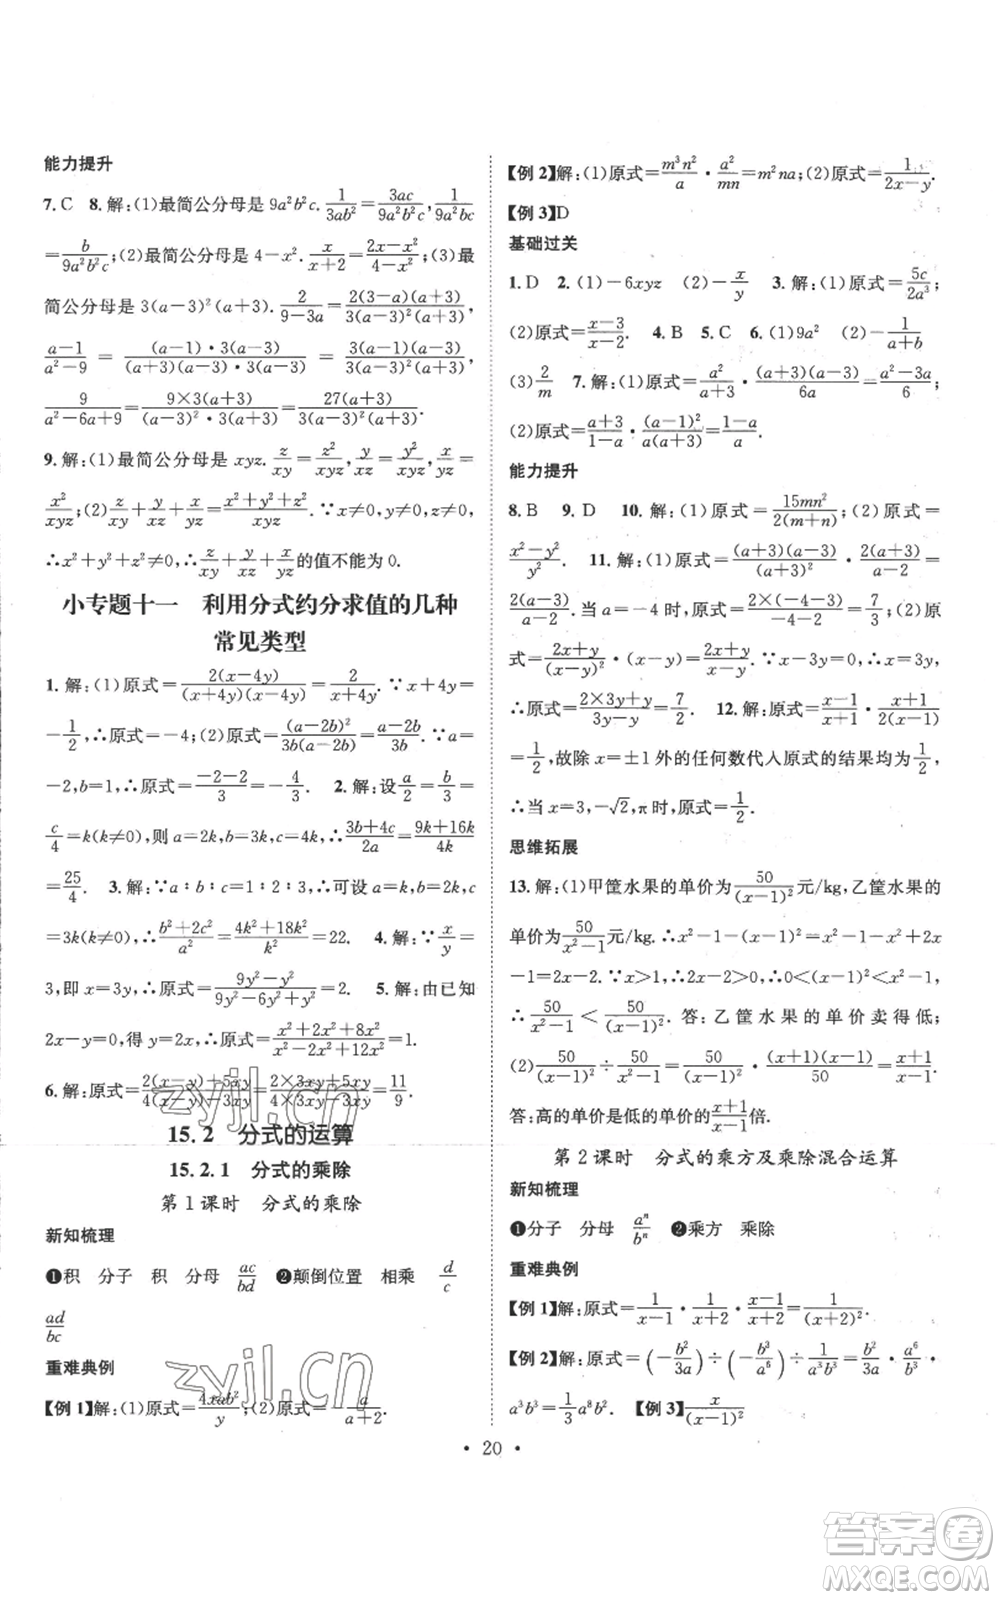 能力提升
7. C 8. 解:(1)最简公分母是 9a²b²c. 1/(3ab²)=3ac/(9a²b²c), 1/(9a²bc)
=b/(9a²b²c);(2)最简公分母是 4-x². x/(x+2)=(2x-x²)/(4-x²);(3)最
简公分母是 3(a-3)²(a+3). 2/(9-3a)=2(3-a)(a+3)/(3(a-3)²(a+3)),
(a-1)/(a²-9)=(a-1)·3(a-3)/((a+3)(a-3)·3(a-3))=3(a-1)(a-3)/(3(a-3)²(a+3)),
9/(a²-6a+9)=9×3(a+3)/((a-3)²·3(a+3))=27(a+3)/(3(a-3)²(a+3)).
9. 解:(1)最简公分母是 xyz. z/(xy)=z²/(xyz), y/(xz)=y²/(xyz), x/(yz)=
x²/(xyz);(2)z/(xy)+y/(xz)+x/(yz)=(x²+y²+z²)/(xyz). ∵x≠0,y≠0,z≠0,
∴x²+y²+z²≠0. ∴z/(xy)+y/(xz)+x/(yz)的值不能为 0.
小专题十一 利用分式约分求值的几种
常见类型
1. 解:(1)原式=2(x-4y)/((x+4y)(x-4y))=2/(x+4y). ∵x+4y=
-1/2,∴原式=-4;(2)原式=(a-2b)²/(3b(a-2b))=(a-2b)/(3b). ∵a=
-2,b=1,∴原式=(-2-2)/3=-4/3. 2. 解:设a/2=b/3=
c/4=k(k≠0),则 a=2k,b=3k,c=4k,∴(3b+4c)/(2a)=(9k+16k)/(4k)
=25/4. 3. 解:∵a:b:c=1:2:3,∴可设 a=k,b=2k,c
=3k(k≠0),∴(b²+2c²)/a²=(4k²+18k²)/k²=22. 4. 解:∵x/y=
3,即 x=3y,∴原式=(9y²-y²)/(9y²-6y²+y²)=2. 5. 解:由已知
2x-y=0,得 y=2x,∴原式=(x²+2x²+8x²)/(x²+2x²+8x²)=1.
6. 解:原式=(2(x-y)+5xy)/(4(x-y)-3xy)=(2×3xy+5xy)/(4×3xy-3xy)=11/9.
15.2 分式的运算
15.2.1 分式的乘除
第 1 课时 分式的乘除
新知梳理
❶积 分子 积 分母 ac/bd ❷颠倒位置 相乘 d/c
ad/bc
重难典例
【例 1】解:(1)原式=4xab²/y;(2)原式=-a/(a+2).
【例 2】解:(1)原式=m³n²/a·a²/mn=m²na;(2)原式=1/(2x-y).
【例 3】D
基础过关
1. D 2. (1)-6xyz (2)-x/y 3. 解:(1)原式=5c/(2a³);
(2)原式=(x-3)/(x-2). 4. B 5. C 6. (1)9a² (2)-1/(a+b)
(3)2/m 7. 解:(1)原式=a²/(a+3)·(a+3)(a-3)/(6a)=(a²-3a)/6;
(2)原式=(a+3)/(1-a)·(a-1)²/(a(a+3))=(1-a)/a.
能力提升
8. B 9. D 10. 解:(1)原式=15mn²/(2(m+n));(2)原式=
(x²-y²)/y². 11. 解:(1)原式=(a+3)(a-3)/(a+3)²·2(a+3)/(a-2)=
2(a-3)/(a-2). 当 a=-4 时,原式=2×(-4-3)/(-4-2)=7/3;(2)原
式=(2x+y)/(x-y)²·(x-y)=(2x+y)/(x-y). ∵x-3y=0,∴x=3y,
∴原式=(2×3y+y)/(3y-y)=7/2. 12. 解:原式=(x-1)/(x+1)·(x+1)/(2(x-1))
=1/2,故除 x=±1 外的任何数代入原式的结果均为1/2,
∴当 x=3,-√2,π时,原式=1/2.
思维拓展
13. 解:(1)甲筐水果的单价为50/(x-1)²元/kg,乙筐水果的
单价为50/(x²-1)元/kg. ∴x²-1-(x-1)²=x²-1-x²+2x
-1=2x-2. ∵x>1,∴2x-2>0,∴0<(x-1)²<x²-1,
∴50/(x²-1)<50/(x-1)². 答:乙筐水果的单价卖得低;
(2)50/(x-1)²÷50/(x²-1)=50/(x-1)²·(x+1)(x-1)/50=(x+1)/(x-1).
答:高的单价是低的单价的(x+1)/(x-1)倍.
第 2 课时 分式的乘方及乘除混合运算
新知梳理
❶分子 分母 aⁿ/bⁿ ❷乘方 乘除
重难典例
【例 1】解:原式=1/(x-1)·1/(x+2)·(x-1)/(x+2)=1/(x+2)².
【例 2】解:原式=(-b²/3a)÷(-b³/a⁶)÷1/(a³b³)=b²/3a·a⁶/b³·
a³b³=1/3a⁸b². 【例 3】x/(x-1)²
· 20 ·
zyjl.cn
zyjl.cn
答案卷
MXQE.COM